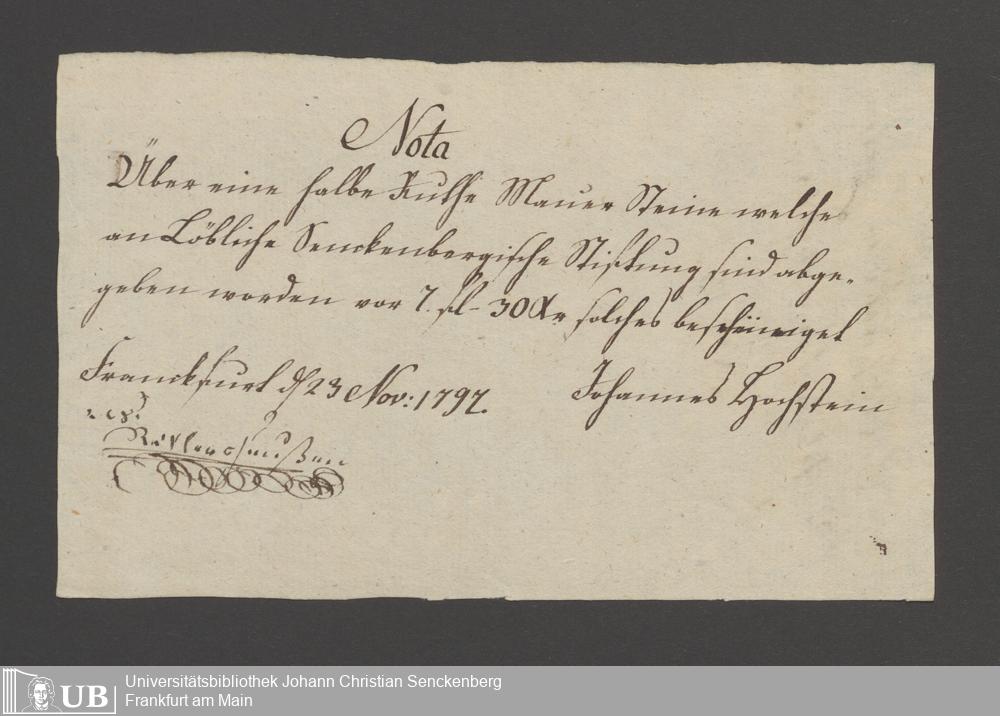 Nota
Über eine halbe Ruthe Mauer Steine welche
an Löbliche Senckenbergische Stiftung sind abge-
geben worden vor 7. fl- 30 Xr solches bescheiniget
Franckfurt d 23 Nov: 1797.
Johannes Hochstein
UB
Universitätsbibliothek Johann Christian Senckenberg
Frankfurt am Main